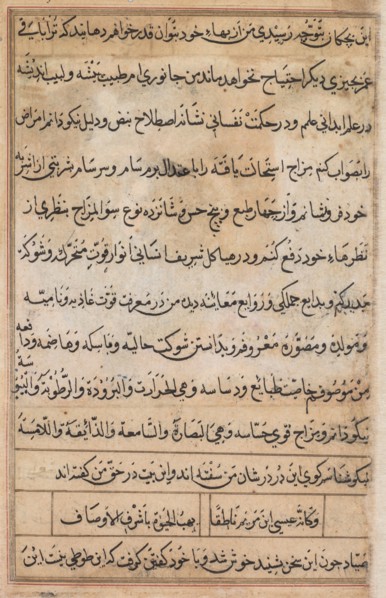 این بچکان بتو رسیدی من از بهاء خود بتوان قدر خواهم دهانید که ترا باقی
عمر بچیزی دیگر احتیاج نخواهد ماند من جانوری ام طبیب پیشه و لبیب اندیشه
در علم ابدانی علم و در حکمت نفسانی نشانه اصطلاح نبض و دلیل نیکو دانم امراض
را بصواب کنم مزاج استحان یافته را با عند الیوم سام و سرسام شربتی از اشربه
خود فرونشانم و از چهار طبع و پنج حس و شانزده نوع سوء المزاج بنظری از
نظرهاء خود دفع کنم و در هیاکل شریف انسانی انوار قوت متحرک و شوکت
مدرکه و بدایع جملگی و روایع معاینه دیدن من در معرفت قوت غاذیه و نامیه
و مولده و مصوره معروف و بدانستن شوکت جالبه و ماسکه و هاضمه و دافعه
من موصوفم خاصیت طبایع و دساسه و هی الحرارت والبرودة والرطوبة والیبوسة
نیکو دانم و مزاج قوی حساسه و هی الباصرة والسامعة والذائقة واللامسة
نیکو شناسم گوی این در در شان من سفته اند و این بیت در حق من گفته اند
وکانه عیسی ابن مریم ناطقا یهب الحیوة باشرف الاوصاف
صیاد چون این سخن شنید خوش شد و با خود گفتن گرفت که این طوطی بنت این